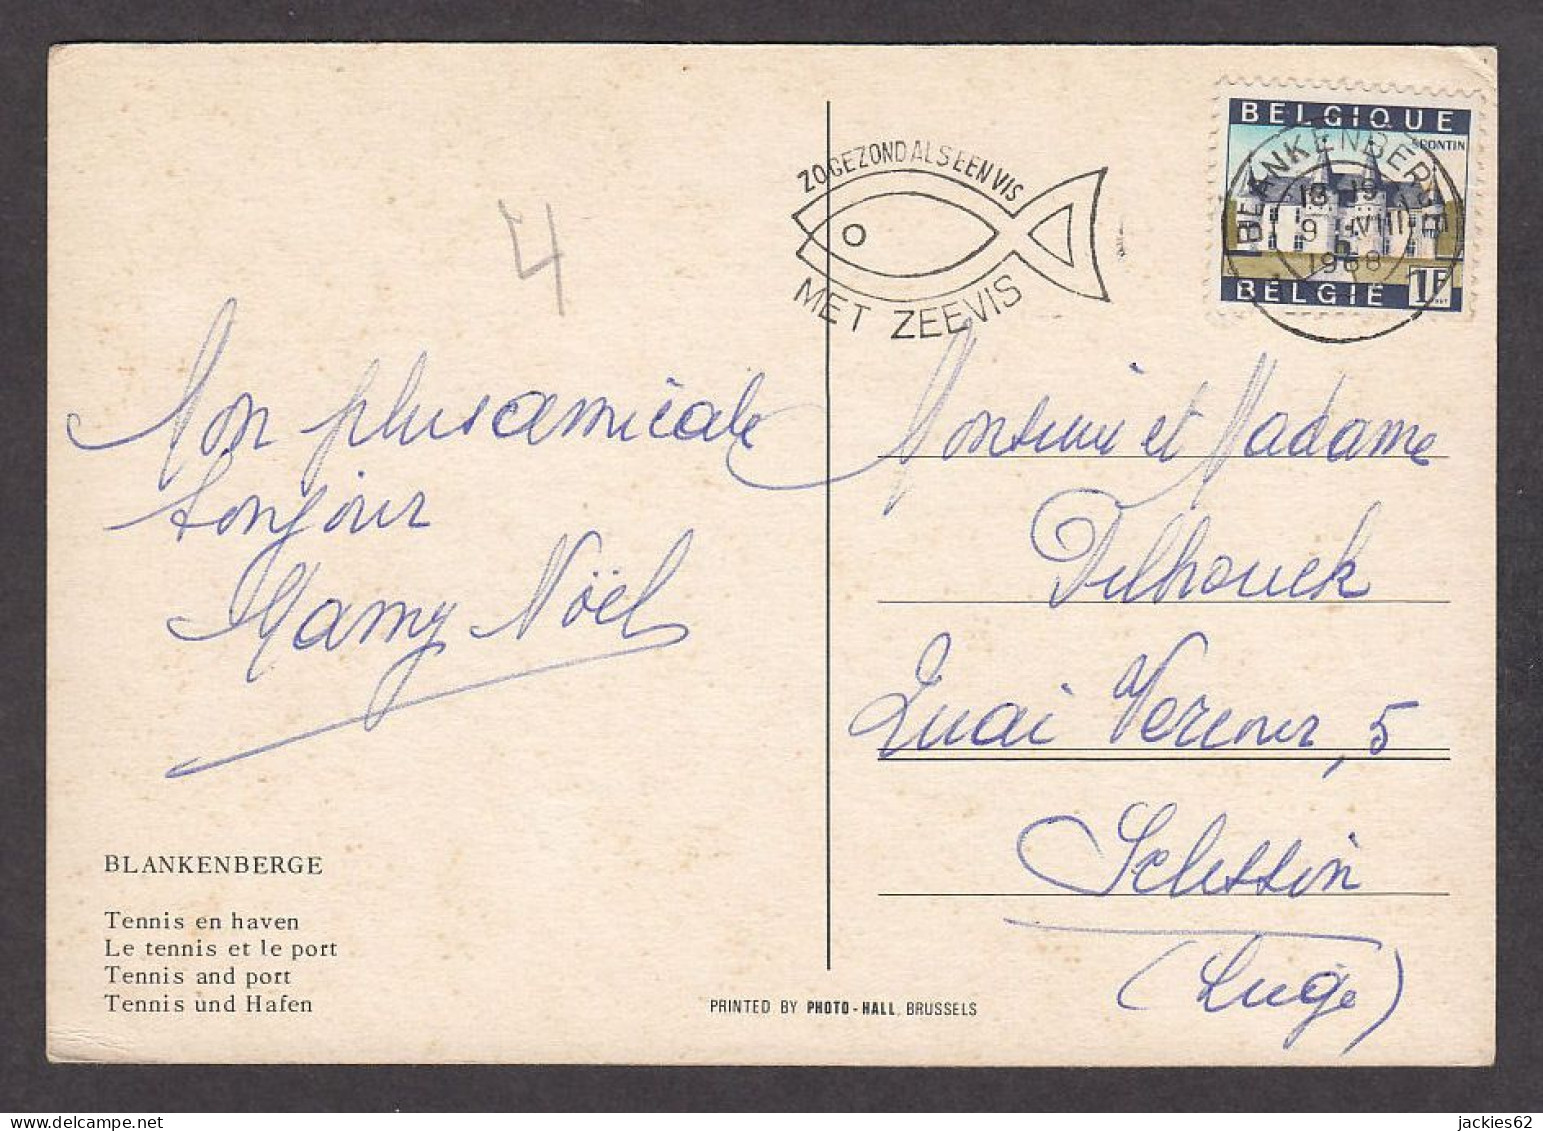 4
Mon plus amicale
bonjour
Mamy Noël
BLANKENBERGE
Tennis en haven
Le tennis et le port
Tennis and port
Tennis und Hafen
PRINTED BY PHOTO-HALL, BRUSSELS
ZO GEZOND ALS EEN VIS
MET ZEEVIS
BELGIQUE
SPONTIN
BELGIE 1F
BLANKENBERGE
18-19
9 -VIII
1968
Monsieur et Madame
Delhouek
Quai Vercour, 5
Sclessin
(Liège)
jackies62